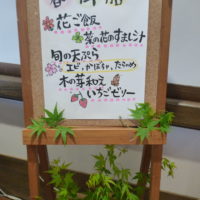 春の御膳
花ご飯
菜の花のすまし汁
旬の天ぷら
エビ、かぼちゃ、たらのめ
木の芽和え
いちごゼリー